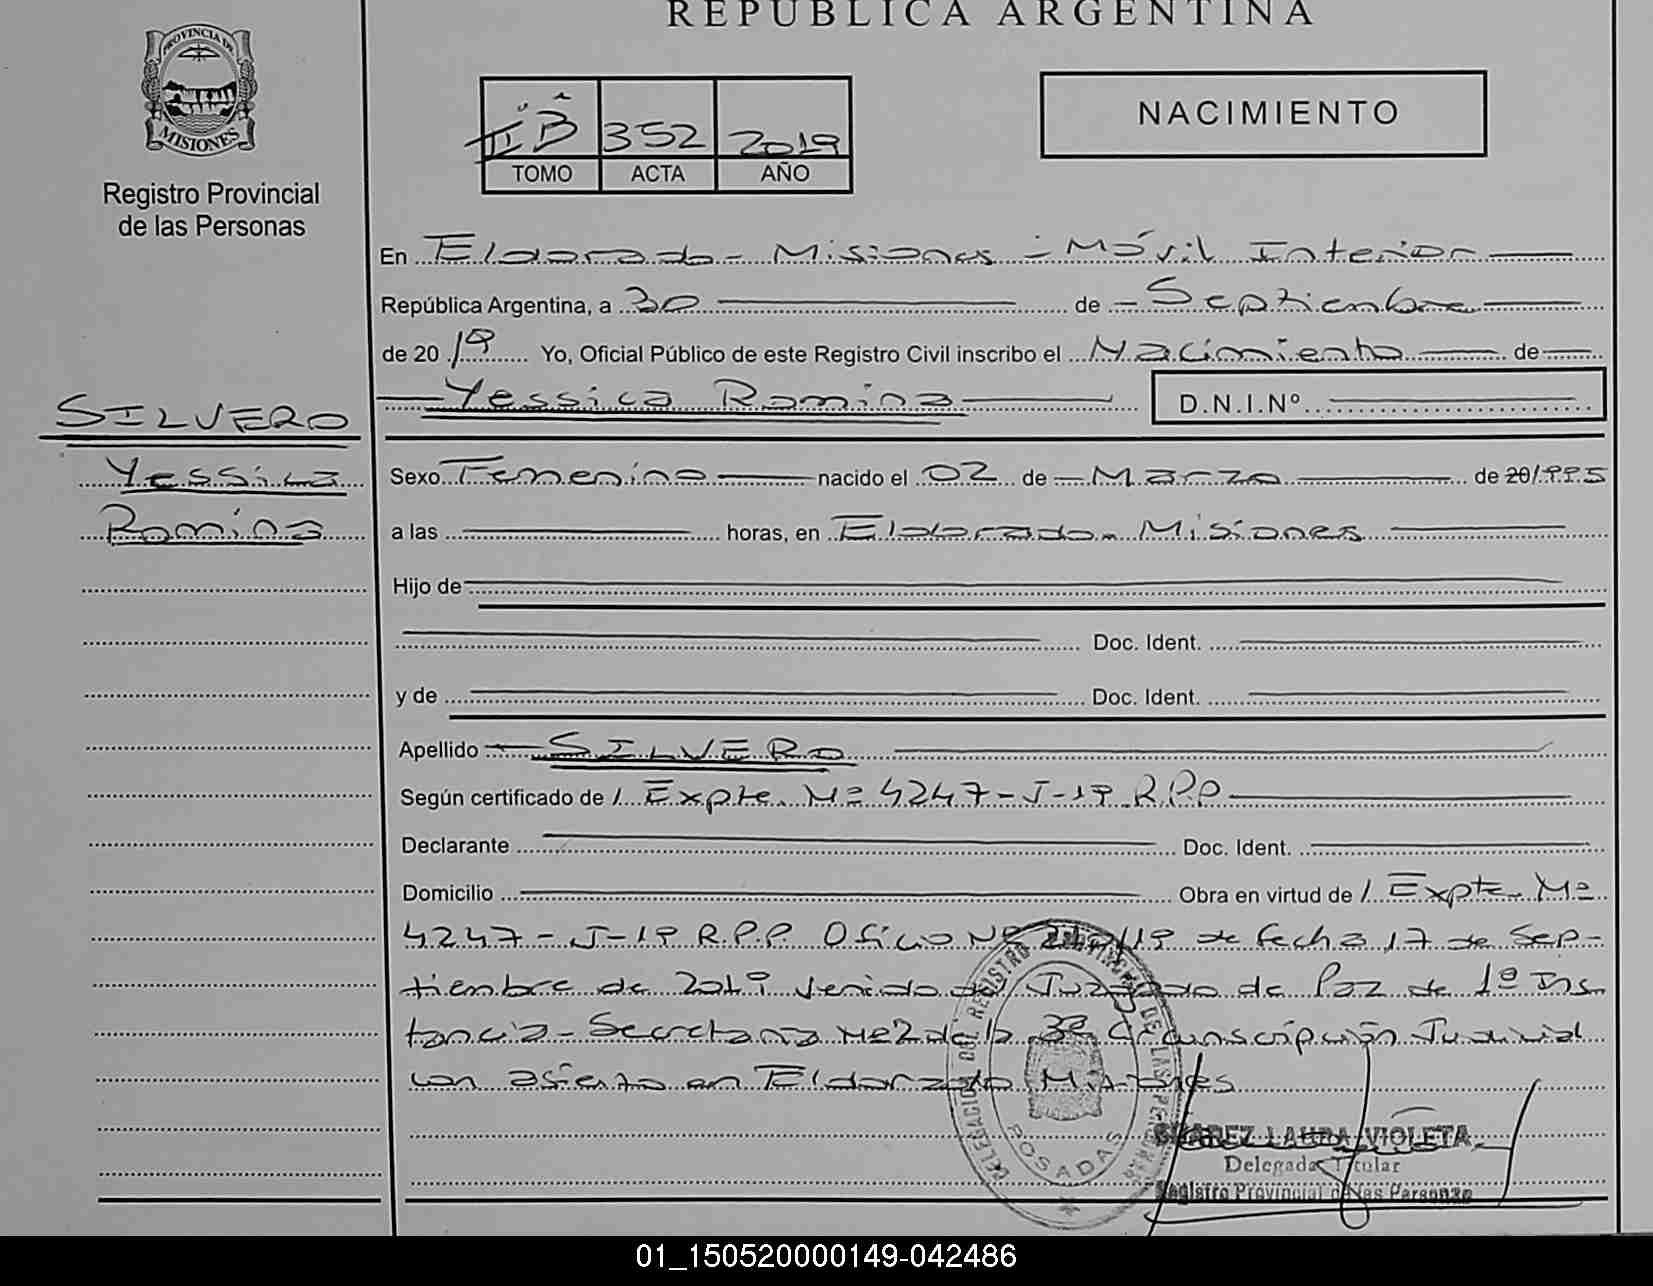 REPUBLICA ARGENTINA
PROVINCIA DE
MISIONES
Registro Provincial
de las Personas
II B 352 2019
TOMO ACTA AÑO
NACIMIENTO
En Eldorado - Misiones - Móvil Interior
República Argentina, a 30 de Septiembre
de 2019 Yo, Oficial Público de este Registro Civil inscribo el Nacimiento de
Yessica Romina D.N.I.Nº
SILVERO
Yessica
Romina
Sexo Femenino nacido el 02 de Marzo de 20/1995
a las horas, en Eldorado - Misiones
Hijo de
Doc. Ident.
y de Doc. Ident.
Apellido SILVERO
Según certificado de / Expte. Nº 4247-J-19 R.P.P
Declarante Doc. Ident.
Domicilio Obra en virtud de / Expte. Nº
4247-J-19 R.P.P. Oficio Nº /19 de fecha 17 de Sep-
tiembre de 2019 venido del Juzgado de Paz de 1º Ins-
tancia - Secretaria Nº2 de la 3º Circunscripción Judicial
con asiento en Eldorado Misiones
DELEGACION DEL REGISTRO PROVINCIAL DE LAS PERSONAS
POSADAS
SUAREZ LAURA VIOLETA
Delegada Titular
Registro Provincial de las Personas
01_150520000149-042486